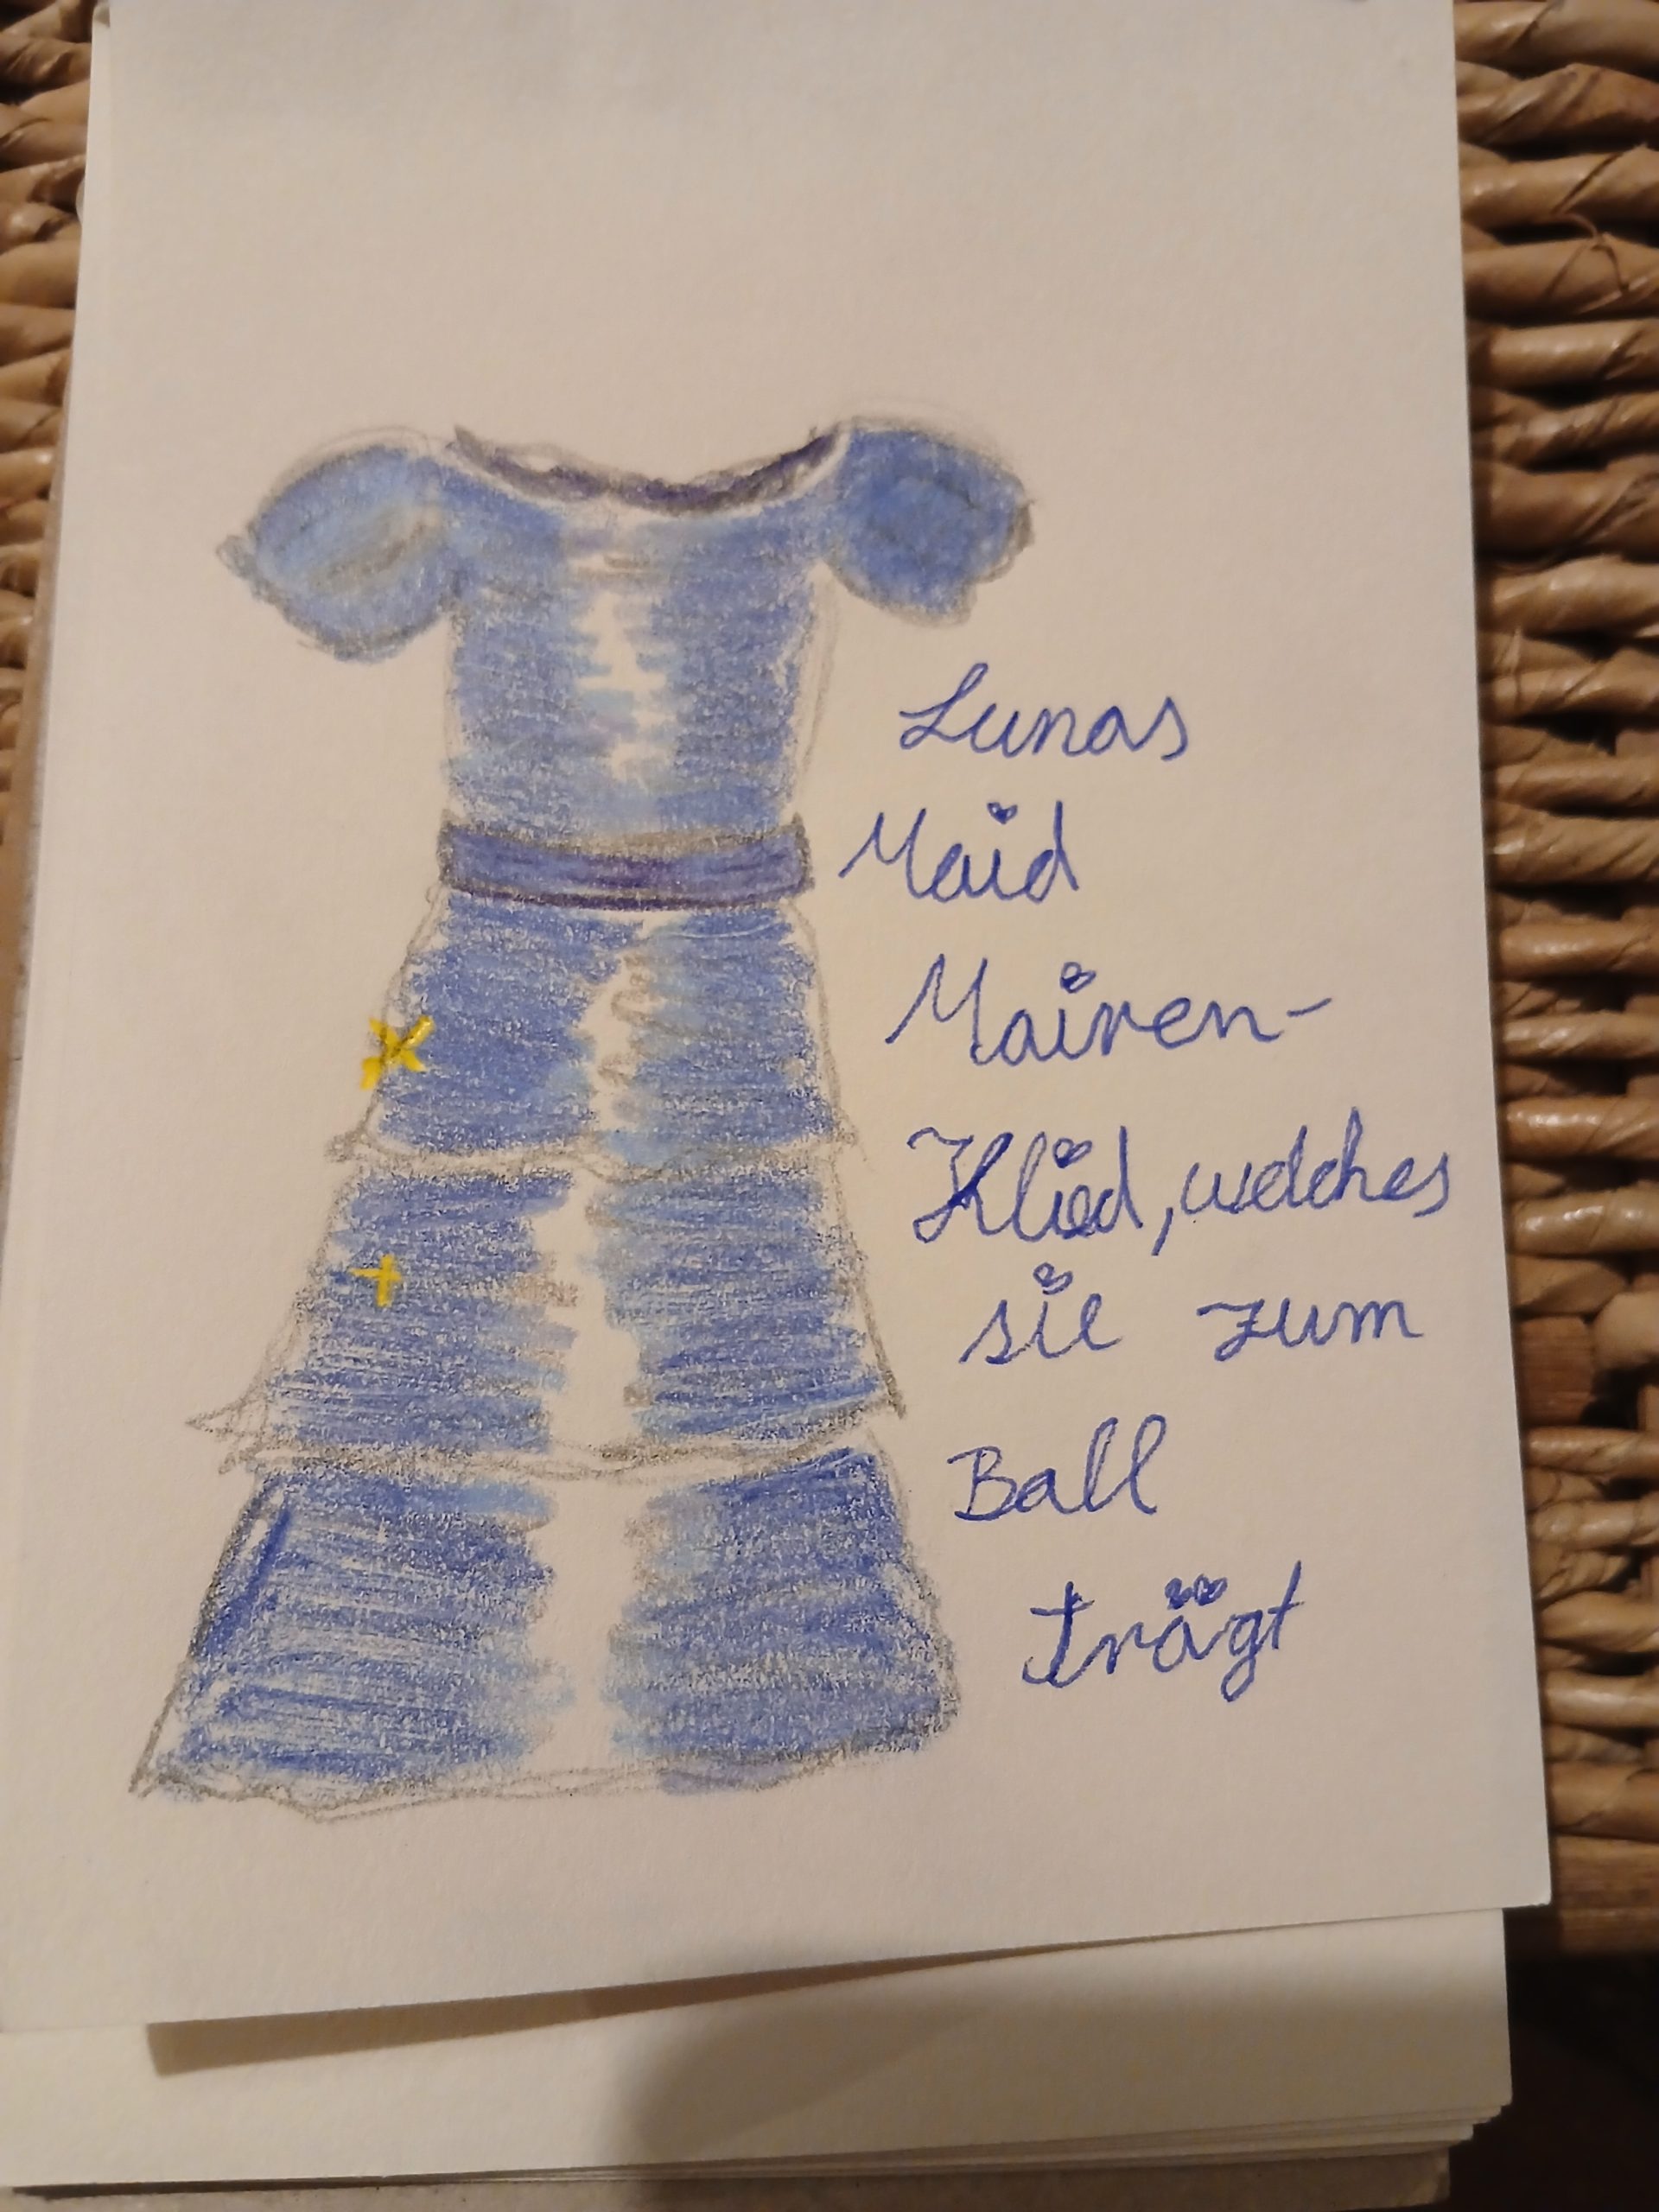 Lunas
Maid
Mairen-
Klied, welches
sie zum
Ball
trägt